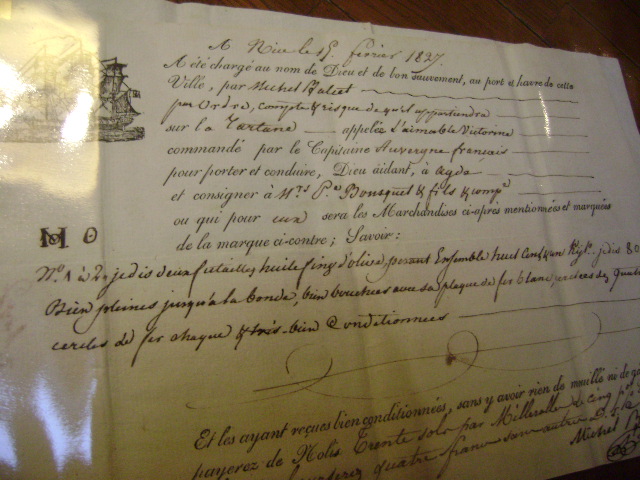 A Nice le 15. février 1827.
A été chargé au nom de Dieu et de bon sauvement, au port et havre de cette
Ville, par Michel
par Ordre, compte & risque de qu'il appartiendra
sur la Tartane appelée l'aimable Victorine
commandé par le Capitaine Auvergne français
pour porter et conduire, Dieu aidant, à agde
et consigner à Mrs. Pre. Bousquet & fils & compe.
ou qui pour eux sera les Marchandises ci-après mentionnées et marquées
de la marque ci-contre; Savoir:
M O
No. 1 à 2, je dis deux futailles huile fine d'olive, pesant Ensemble huit Cent un Kilo. je dis 80
Bien pleines jusqu'à la bonde, bien bouchées avec sa plaque de fer blanc Quatre
cercles de fer chaque & très-bien Conditionnées
Et les ayant reçues bien conditionnées, sans y avoir rien de mouillé ni de
payerez de Nolis Trente sols par Millerolle de cinq
quatre francs sans autre
Michel